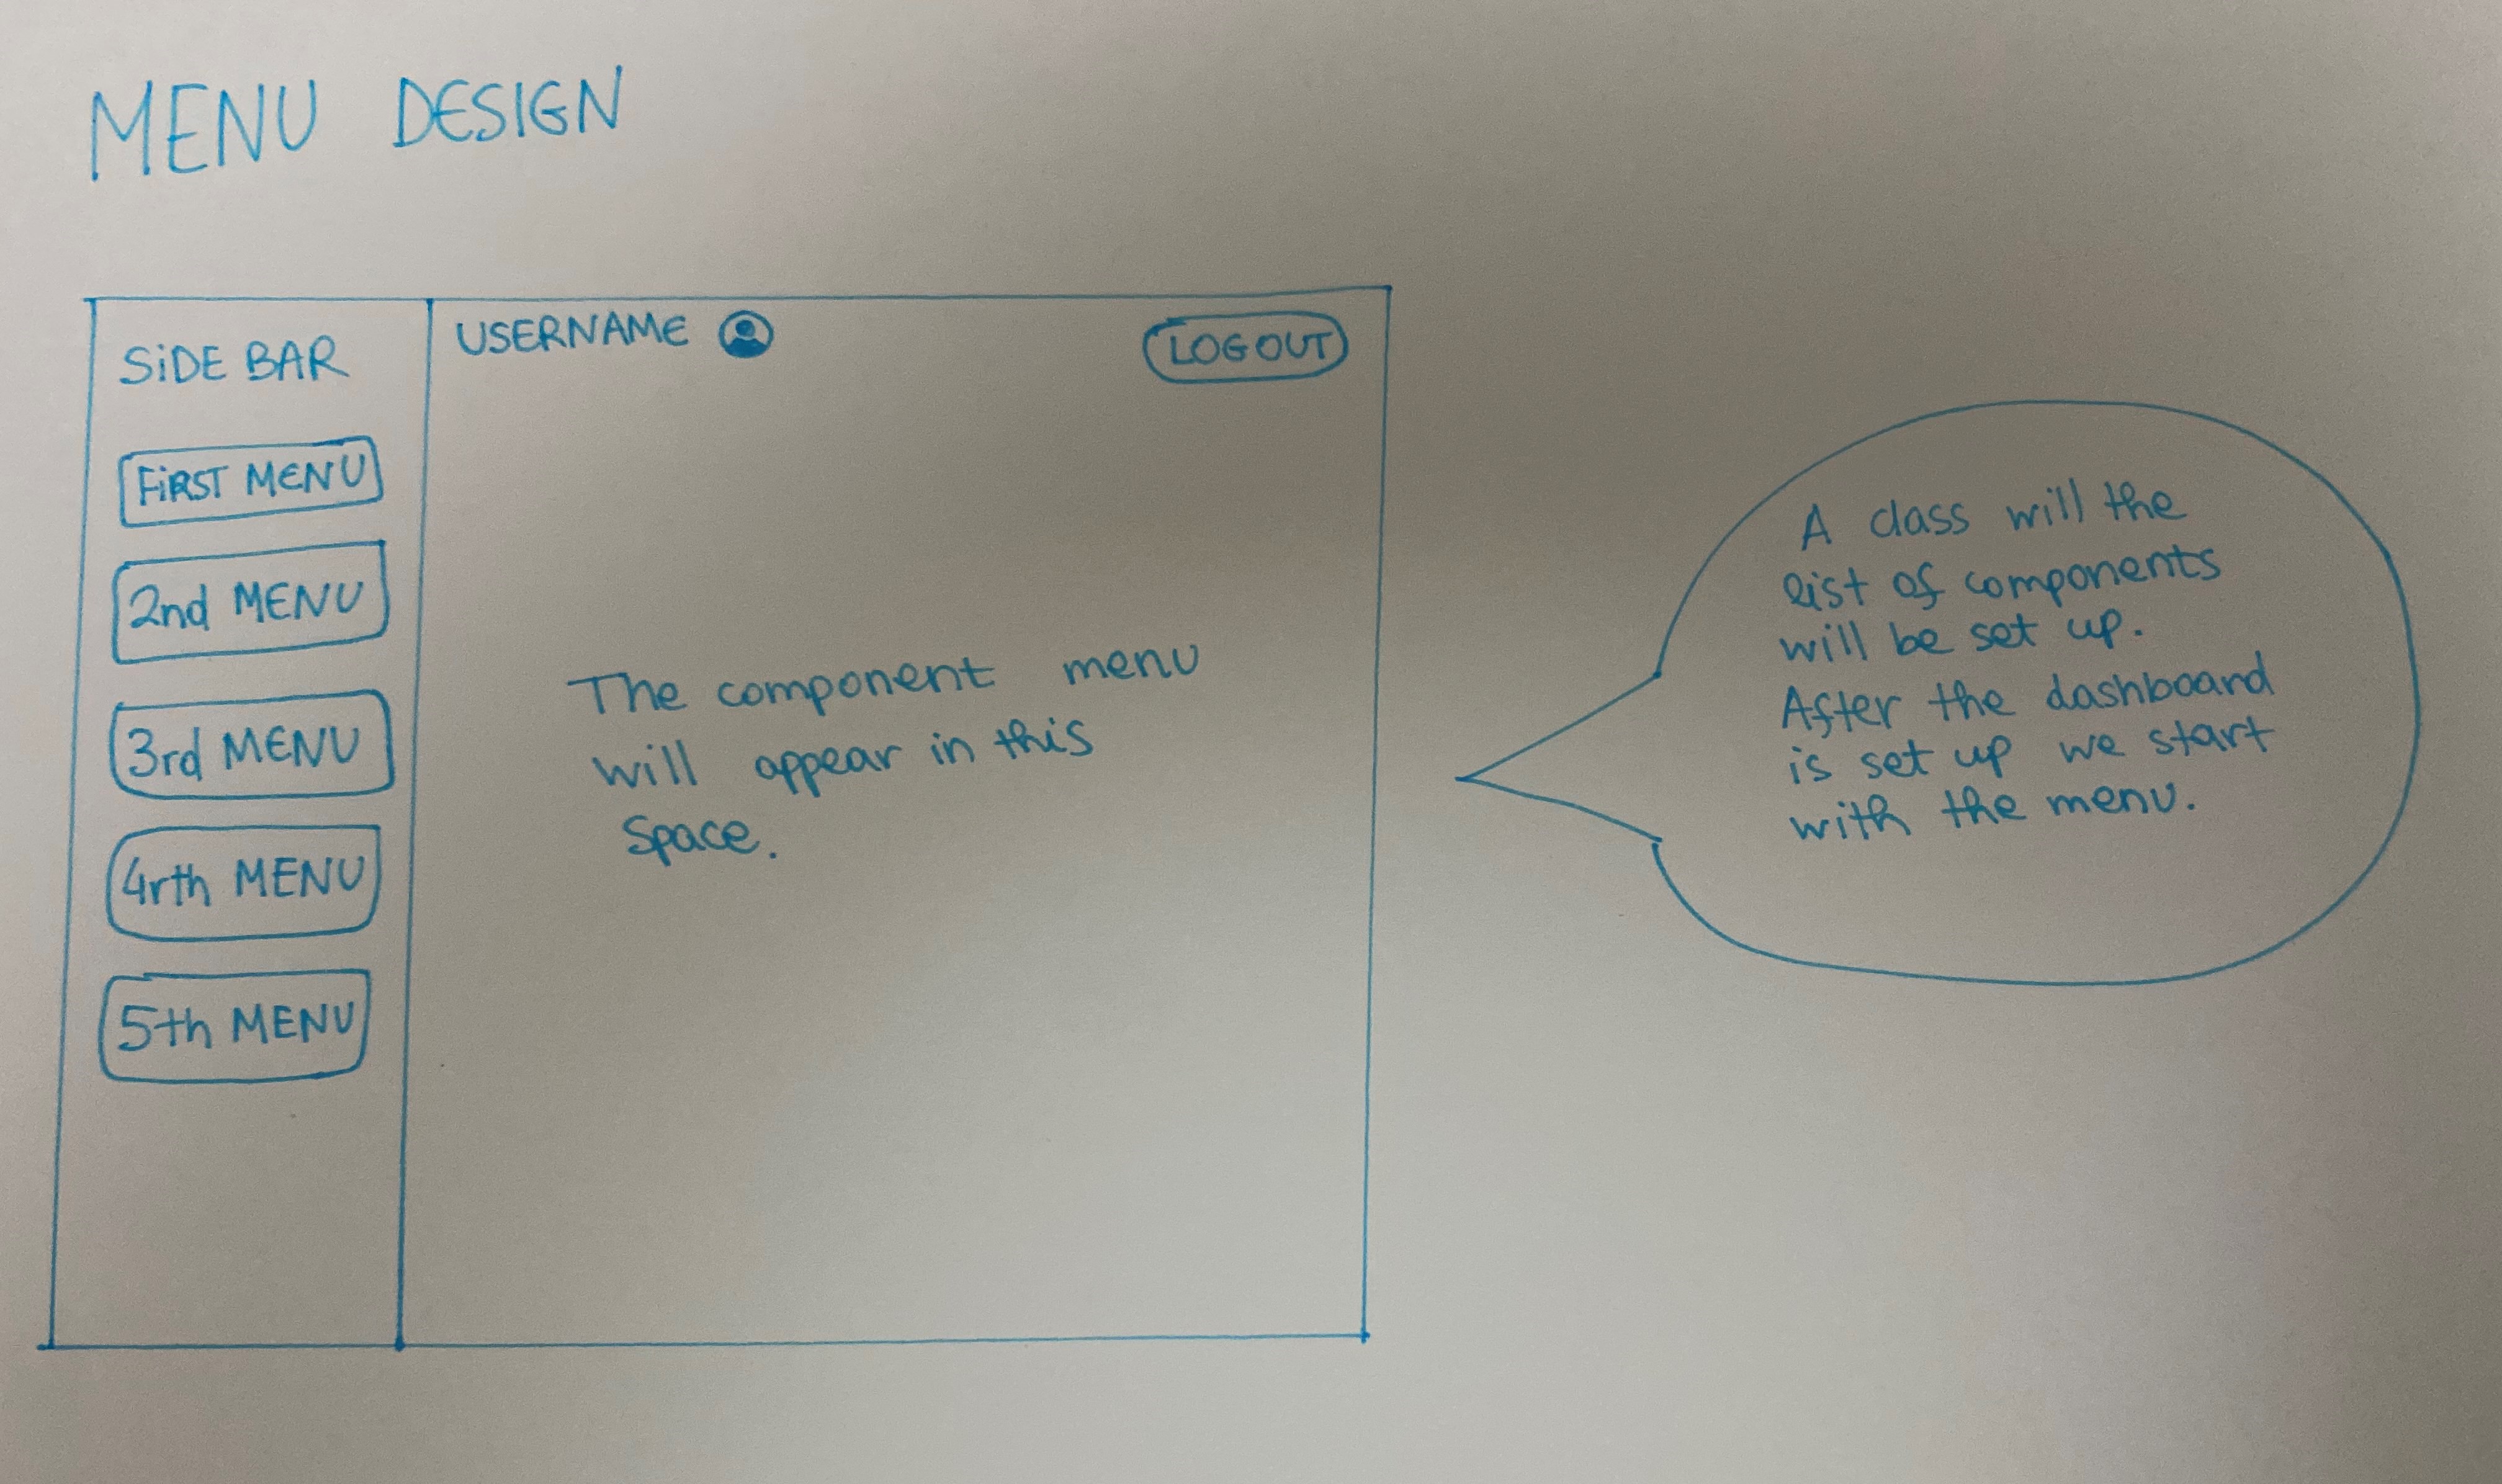 MENU DESIGN
SiDE BAR
FiRST MENU
2nd MENU
3rd MENU
4rth MENU
5th MENU
USERNAME
LOGOUT
The component menu
will appear in this
Space.
A class will the
list of components
will be set up.
After the dashboard
is set up we start
with the menu.